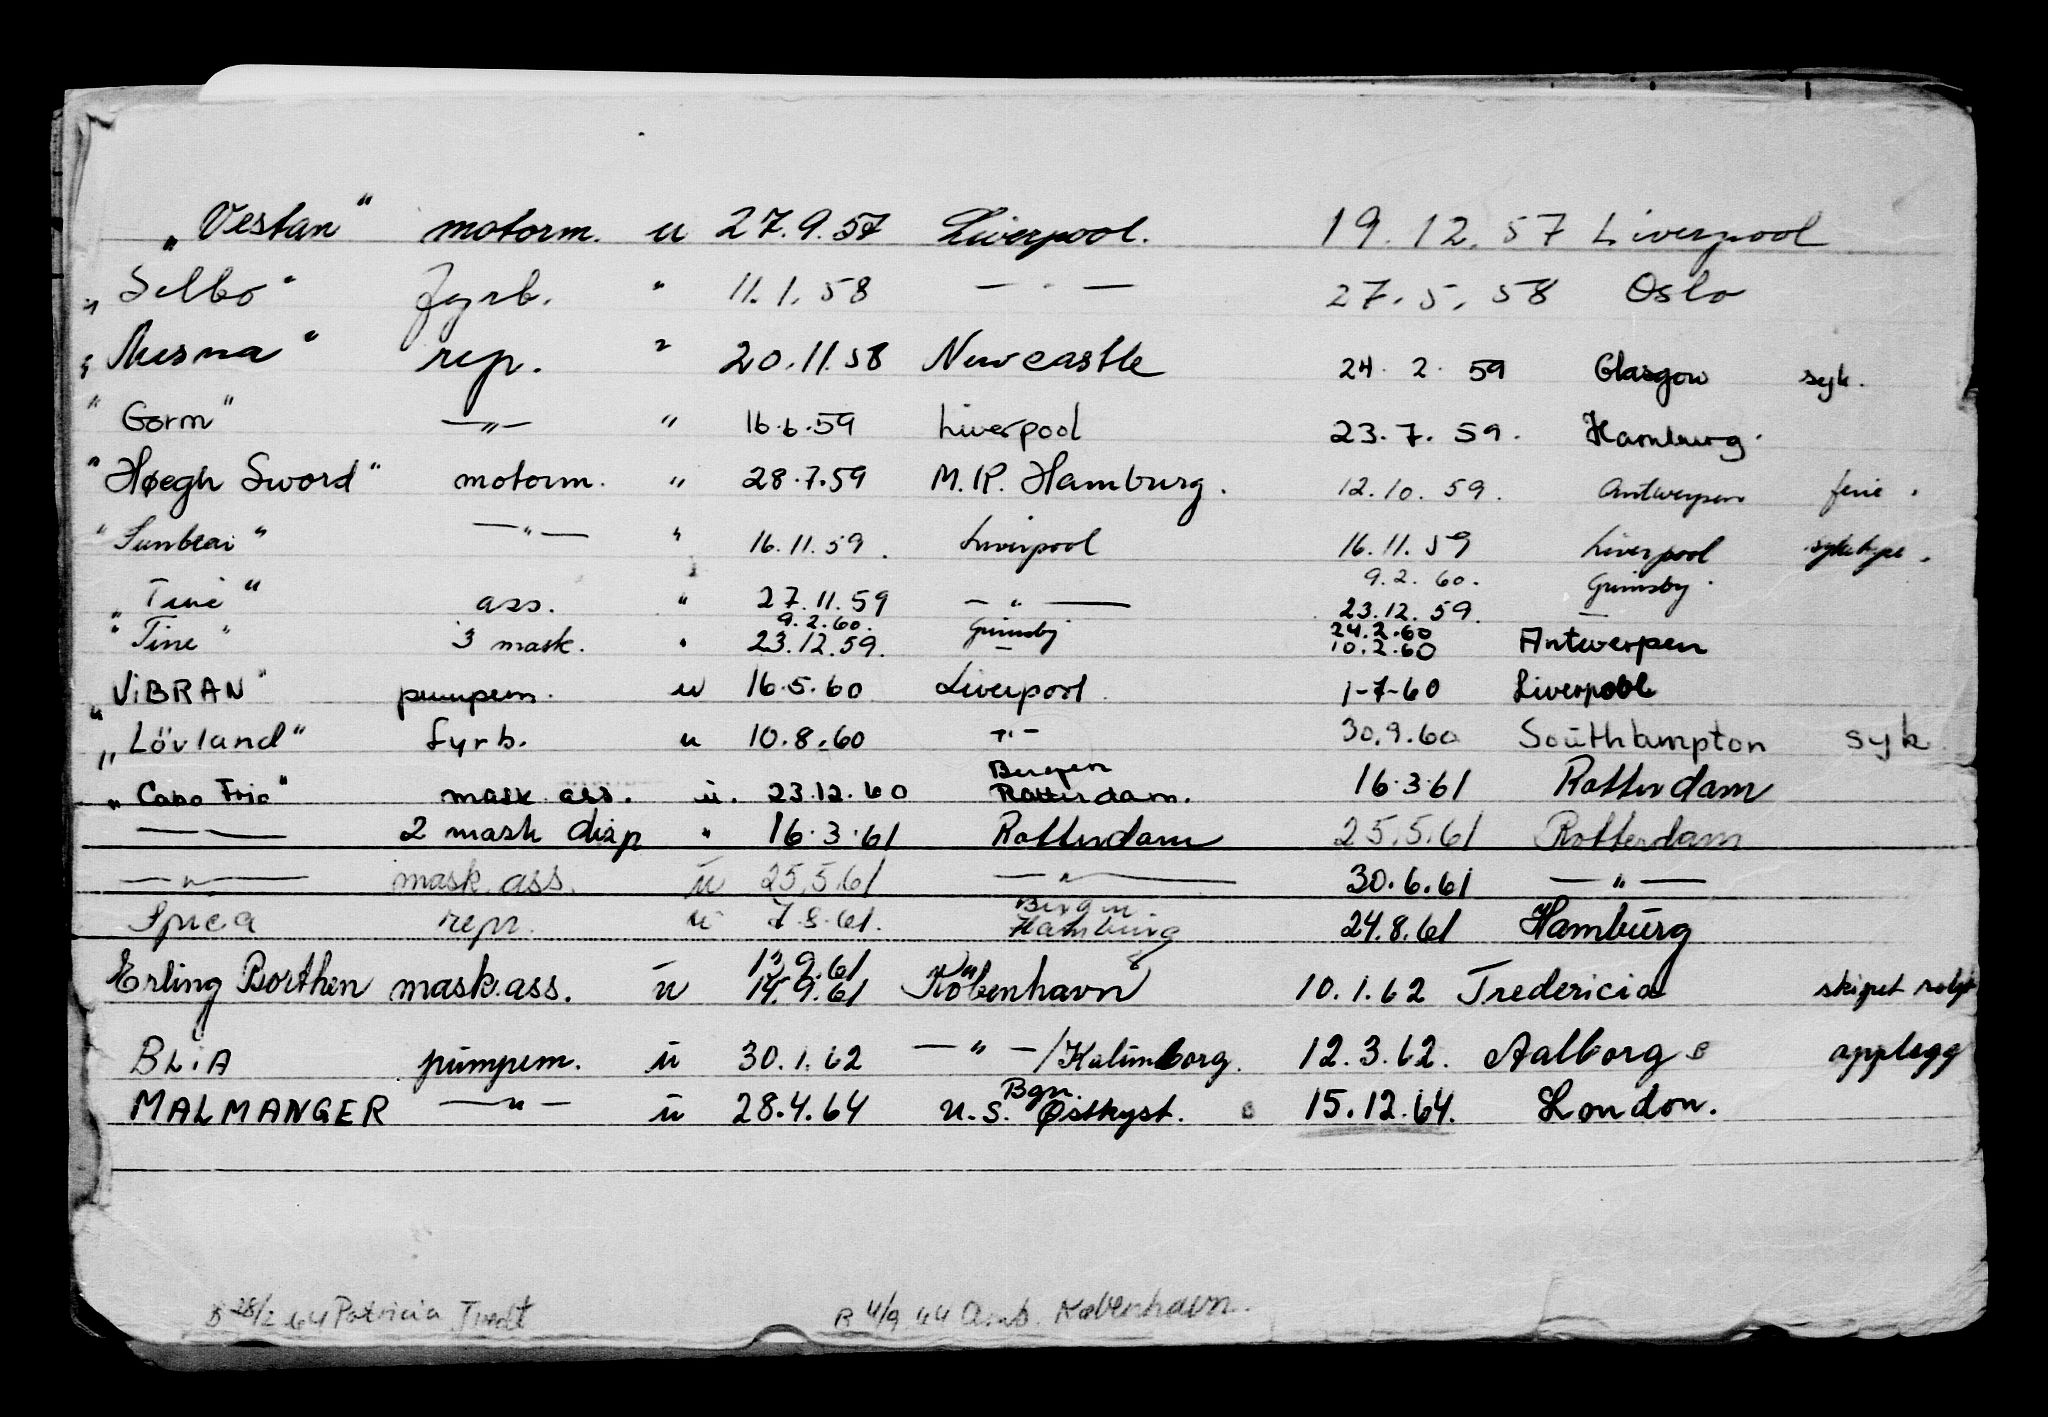 „Vestan" motorm. u 27.9.57 Liverpool. 19.12.57 Liverpool
„Selbo" fyrb. " 11.1.58 — " — 27.5.58 Oslo
„Mesna" rep. " 20.11.58 Newcastle 24.2.59 Glasgow syk.
"Gorm" —"— " 16.6.59 Liverpool 23.7.59. Hamburg.
"Høegh Sword" motorm. " 28.7.59 M.R. Hamburg. 12.10.59. Antwerpen ferie.
—"— " 16.11.59. Liverpool 16.11.59 Liverpool
9.2.60. Grimsby.
„Tine" ass. " 27.11.59 — " — 23.12.59. —
9.2.60. Grimsby 24.2.60
"Tine" 3 mask. " 23.12.59. — 10.2.60 Antwerpen
„ViBRAN" pumpem. u 16.5.60 Liverpool. 1-7-60 Liverpool
„Lövland" fyrb. u 10.8.60 -"- 30.9.60 Southampton syk.
Bergen
„Cabo Frio" mask ass. u. 23.12.60 Rotterdam. 16.3.61 Rotterdam
— — 2 mask disp " 16.3.61 Rotterdam 25.5.61 Rotterdam
—"— mask. ass. u 25.5.61 —"— 30.6.61 —"—
Bergen.
Spica repr. u 7.8.61. Hamburg 24.8.61 Hamburg
9.61
Erling Borthen mask.ass. u 14.9.61 København 10.1.62 Fredericia skipet solgt
BLiA pumpem. u 30.1.62 —"—/Kalundborg. 12.3.62. Aalborg B opplegg
Bgn.
MALMANGER —"— u 28.4.64 U.S. Østkyst. B 15.12.64. London.
B 28/2 64 Patricia Tvedt B 4/9 64 Amb. København.